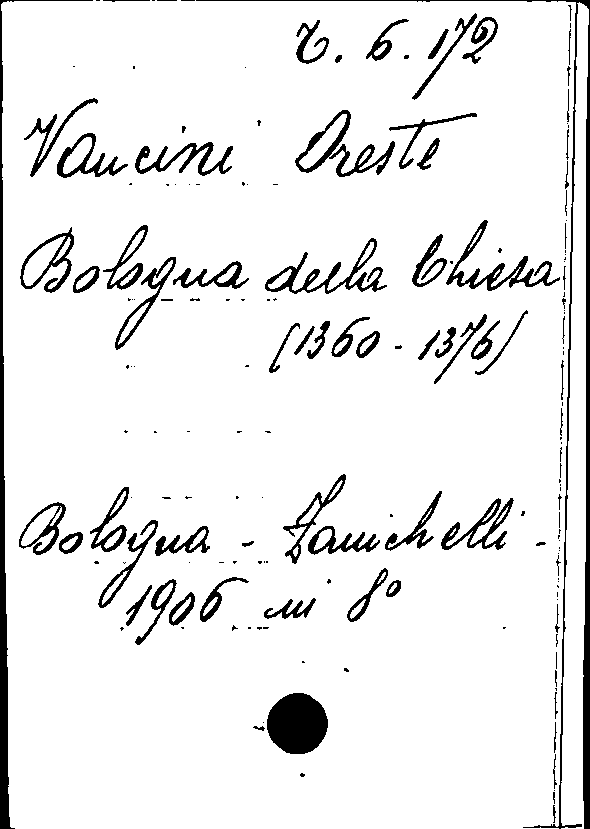 T. 6. 172
Vancini Oreste
Bologna della Chiesa
(1360 - 1376)
Bologna - Zanichelli -
1906 in 8°